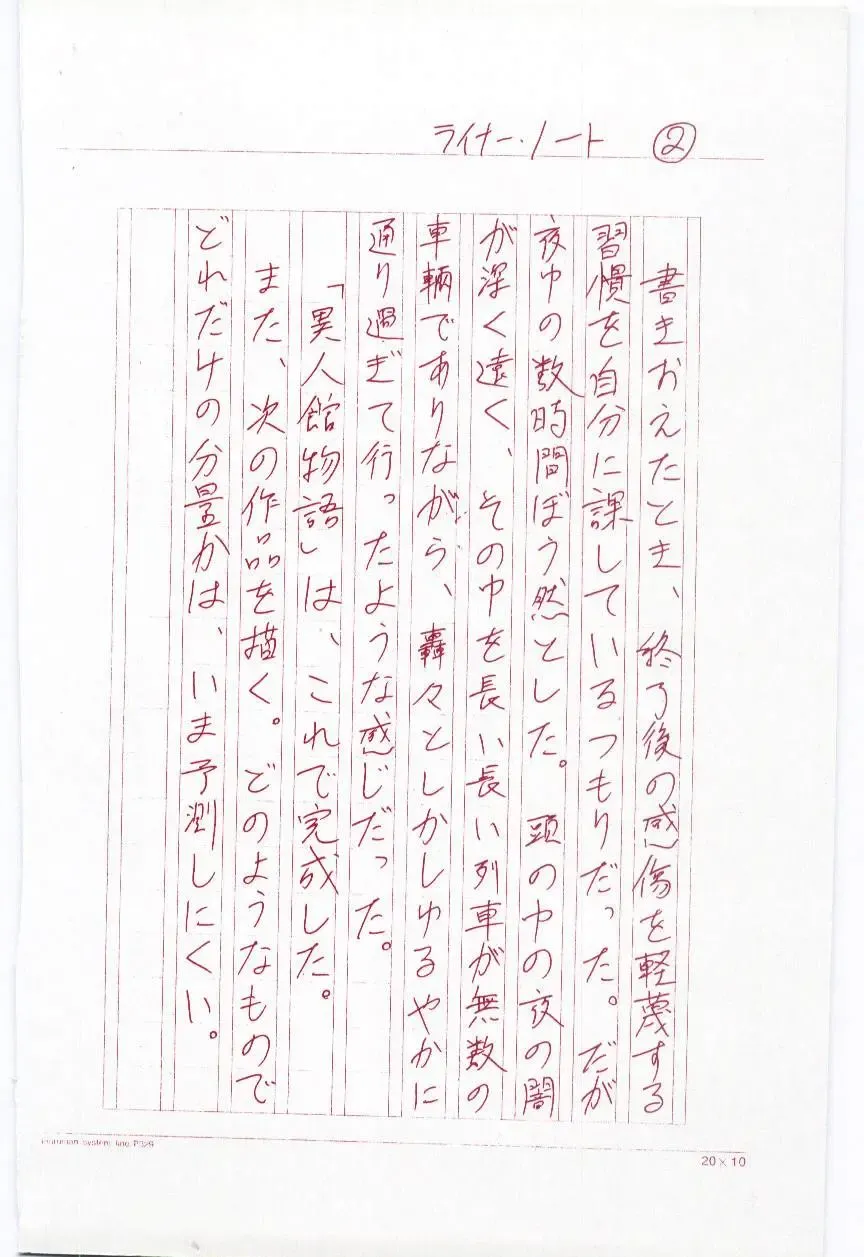 ライナー・ノート ②
書きおえたとき、終了後の感傷を軽蔑する
習慣を自分に課しているつもりだった。だが
夜中の数時間ぼう然とした。頭の中の夜の闇
が深く遠く、その中を長い長い列車が無数の
車輛でありながら、轟々としかしゆるやかに
通り過ぎて行ったような感じだった。
「異人館物語」は、これで完成した。
また、次の作品を描く。どのようなもので
どれだけの分量かは、いま予測しにくい。
20×10